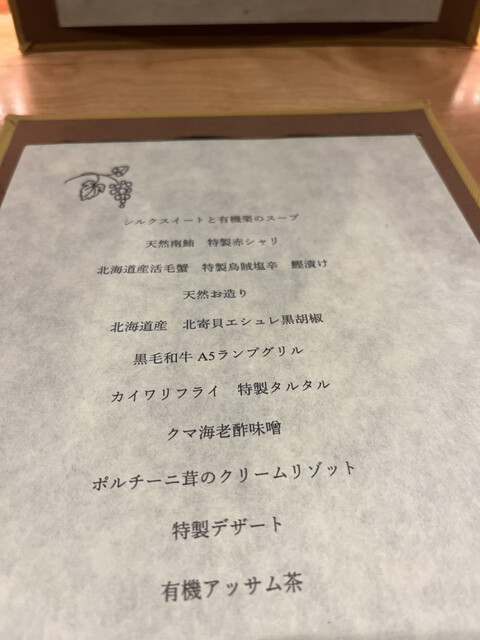 シルクスイートと有機栗のスープ
天然南鮪　特製赤シャリ
北海道産活毛蟹　特製烏賊塩辛　鰹漬け
天然お造り
北海道産　北寄貝エシュレ黒胡椒
黒毛和牛 A5ランプグリル
カイワリフライ　特製タルタル
クマ海老酢味噌
ポルチーニ茸のクリームリゾット
特製デザート
有機アッサム茶